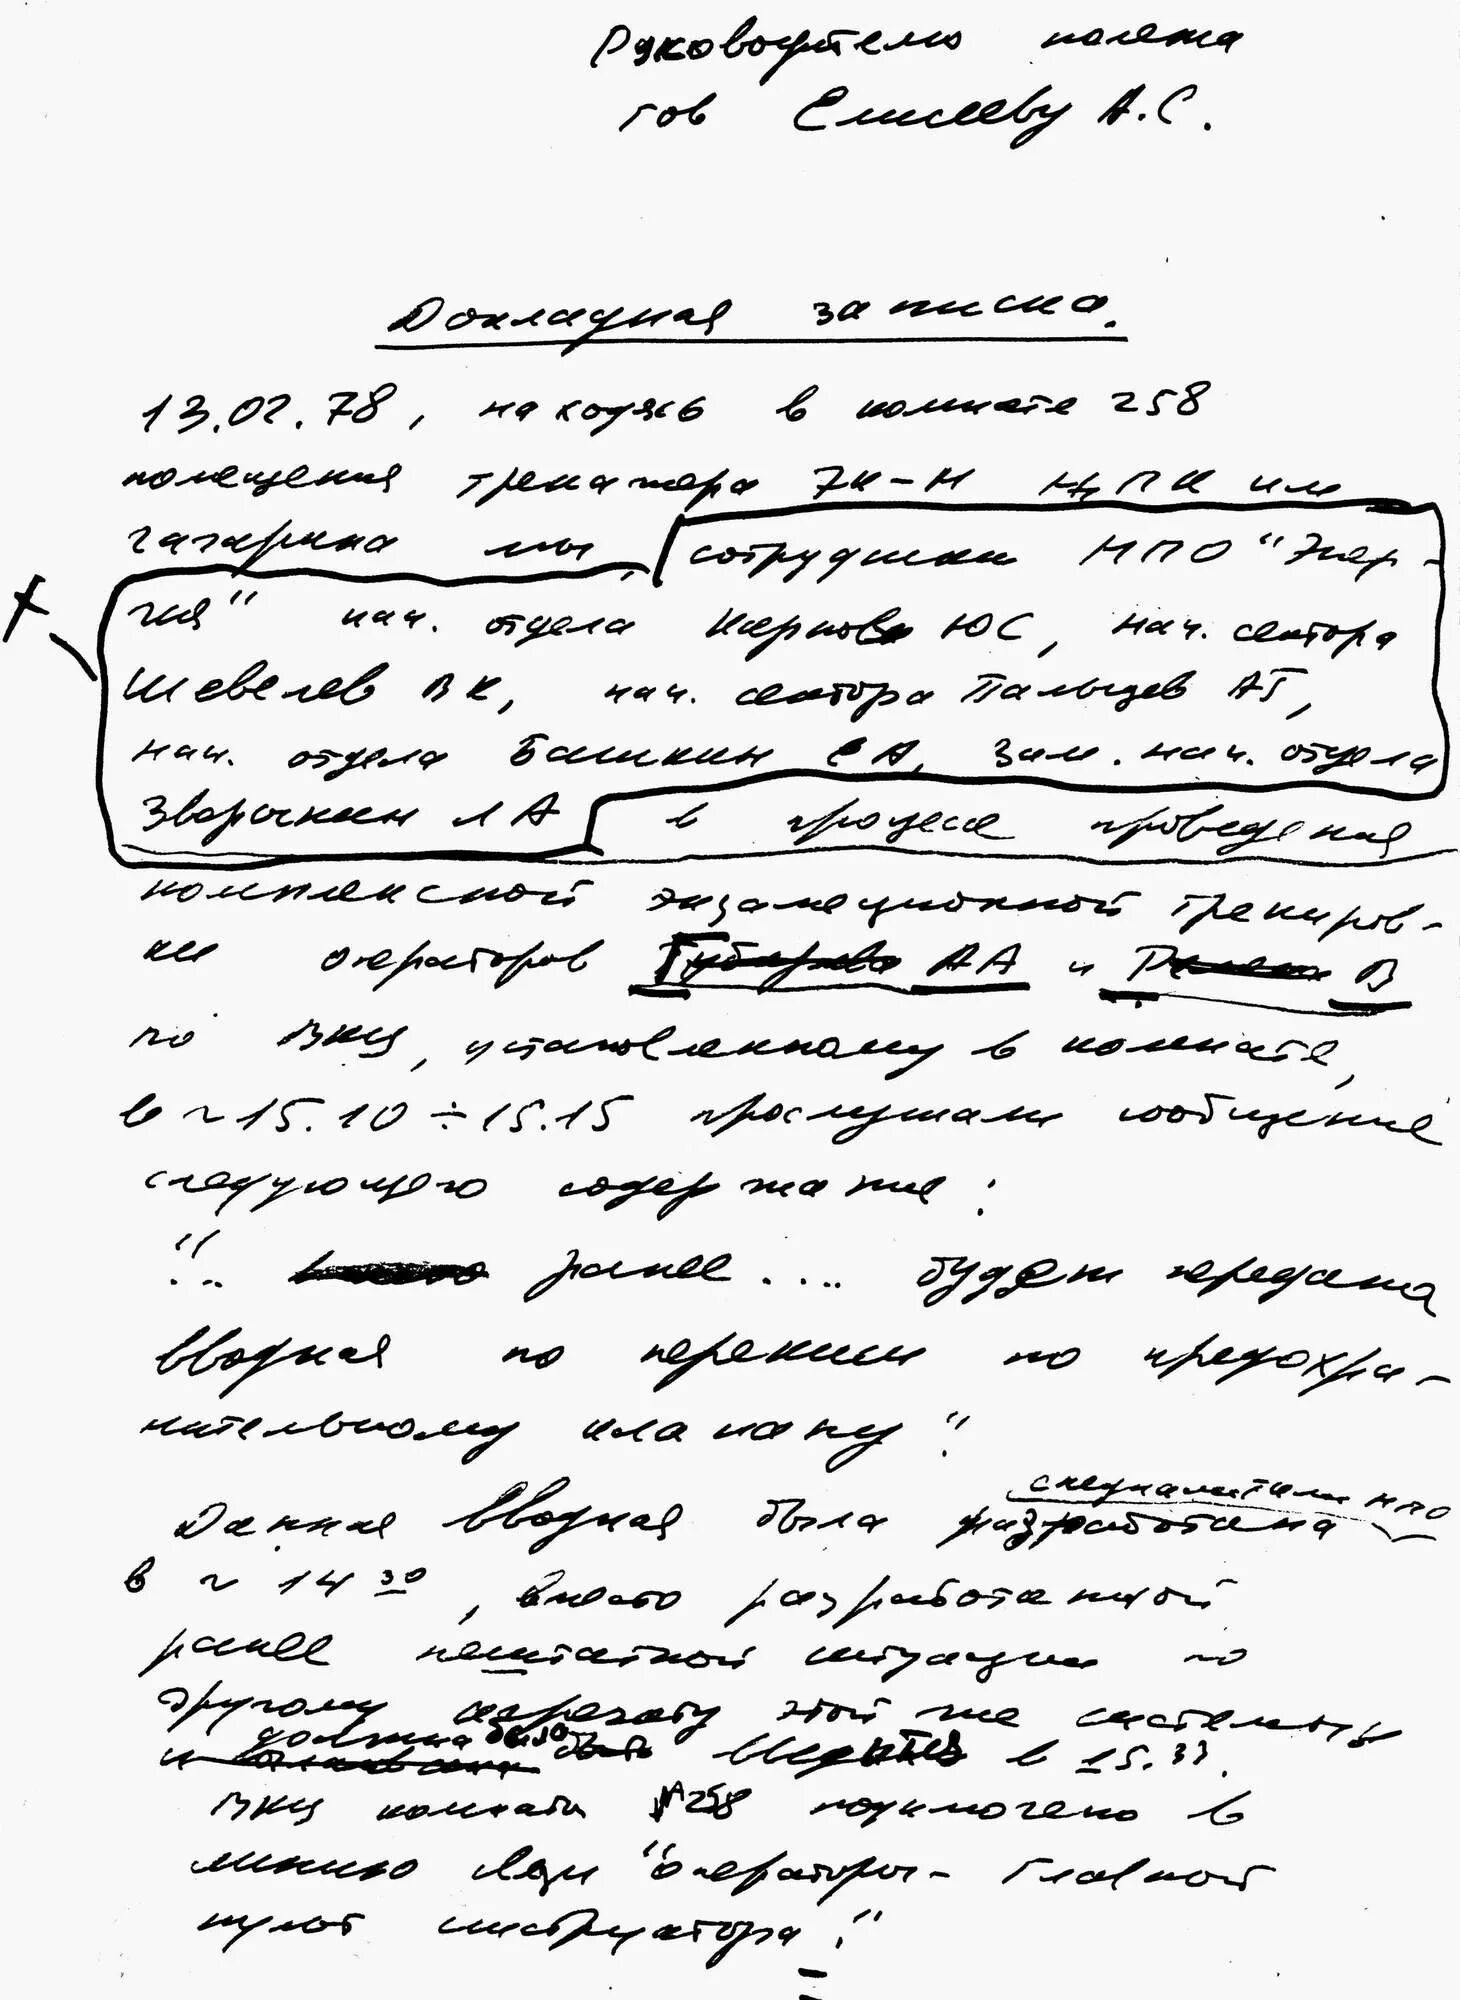 Руководителю полета
тов Елисееву А.С.
Докладная записка.
13.02.78, находясь в комнате 258
помещения тренажера 7К-Н ЦПК им
Гагарина мы, сотрудники НПО "Энер-
гия" нач. отдела Карпов ЮС, нач. сектора
Шевелев ВК, нач. сектора Пальцев АГ,
нач. отдела Башкин ЕА, зам. нач. отдела
Зворыкин ЛА в процессе проведения
комплексной экзамеционной трениров-
ки операторов Губарева АА и В
по ВКЦ, установленному в комнате,
в ~15.10 ÷ 15.15 прослушали сообщение
следующего содержание:
".. ранее .... будет передана
вводная по перекиси по предохра-
нительному клапану".
специалистами НПО
Данная вводная была разработана
в ~ 14 30, вместо разработанной
ранее нештатной ситуации по
другому агрегату этой же системы
должна была
и быть в 15.33.
ВКЦ комнаты №258 подключено в
линию связи "операторы - Главной
пульт инструктора".